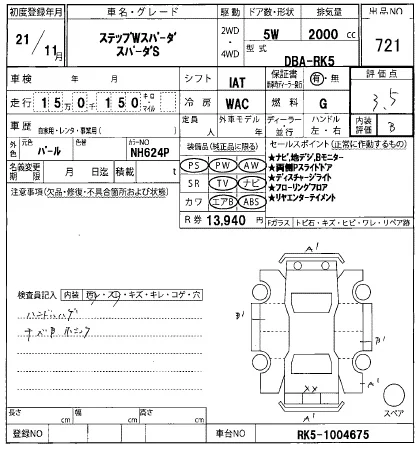 初度登録年月 車名・グレード 駆動 ドア数・形状 排気量 出品NO
21/11月 ステップWスパーダ スパーダS 2WD・4WD 5W 2000cc 721
型式 DBA-RK5
車検 年 月 シフト IAT 保証書 有・無 評価点
走行 15万0千150 キロ・マイル 冷房 WAC 燃料 G 3.5
車歴 自家用・レンタ・事業用( ) 定員 人 外車モデル 年 ディーラー・並行 ハンドル 左・右 内装評価 B
外色 元色 パール 色替 カラーNO NH624P 装備品(純正品に限る) セールスポイント(正常に作動するもの)
名義変更期限 月 日迄 積載 t PS PW AW ★ナビ,地デジ,Bモニター
注意事項(欠品・修復・不具合箇所および状態) SR TV ナビ ★両側Pスライドドア
カワ エアB ABS ★ディスチャージライト
★フローリングフロア
★リヤエンターテイメント
R券 13,940円 Fガラス トビ石・キズ・ヒビ・ワレ・リペア跡
A1
検査員記入 内装 汚レ・スレ・キズ・キレ・コゲ・穴
ハンドルハゲ
B1 B1
XX A1
A1
スペア
長さ cm 幅 cm 高さ cm
登録NO 車台NO RK5-1004675